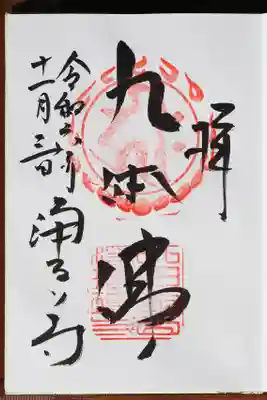 拝
九体佛
令和六年
十一月三日
浄るり寺